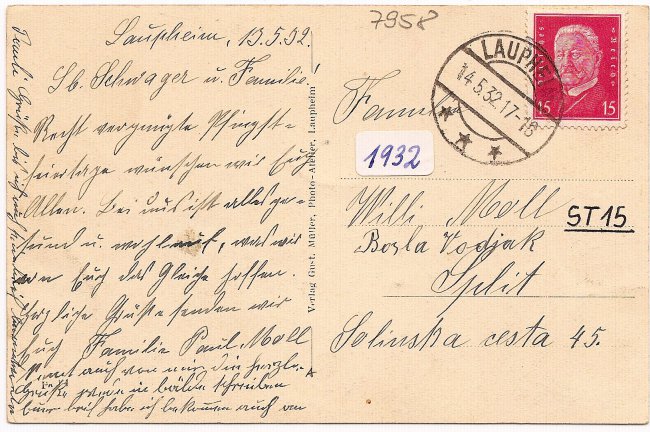 7958
Laupheim, 13.5.32.
Lb. Schwager u. Familie!
Recht vergnügte Pfingst-
feiertage wünschen wir Euch
Allen. Bei uns ist alles ge-
sund u. wohlauf, was wir
von Euch das Gleiche hoffen.
Herzliche Grüße senden wir
Euch Familie Paul Moll
auch von mir die herzl.
Grüße werde in bälde schreiben
habe ich bekommen auch an
Verlag Gust. Müller, Photo-Atelier, Laupheim
LAUPHEIM
14.5.32.17-18
Deutsches Reich
15 15
Familie
1932
Willi Moll
ST 15
Bozla Vodjak
Split
Solinska cesta 45.